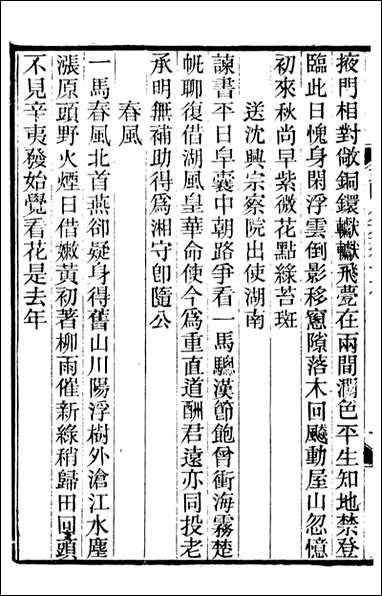 掖門相對敞銅鐶轣轣飛甍在兩間潤色平生知地禁登
臨此日愧身閑浮雲倒影移窻隙落木回飈動屋山忽憶
初來秋尚早紫微花點綠苔斑
送沈興宗察院出使湖南
諫書平日皁囊中朝路爭看一馬驄漢節飽曾衝海霧楚
帆聊復借湖風皇華命使今爲重直道酬君遠亦同投老
承明無補助得爲湘守卽隨公
春風
一馬春風北首燕卻疑身得舊山川陽浮樹外滄江水塵
漲原頭野火煙日借嫩黃初著柳雨催新綠稍歸田回頭
不見辛夷發始覺看花是去年